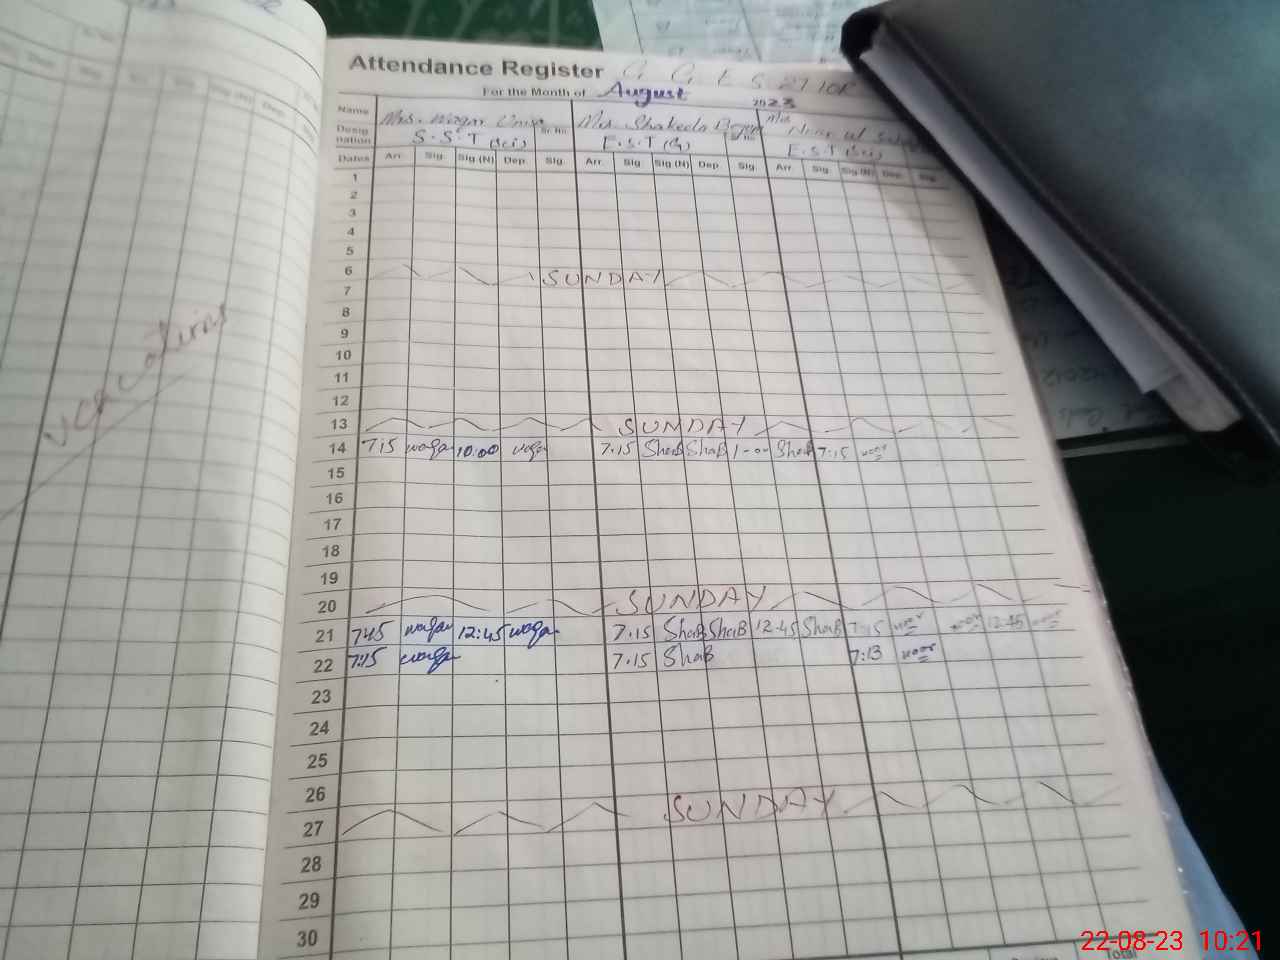 Attendance Register G. G. E. S 27 10R
For the Month of August 2023
Name Mrs. Waqar Unisa Sr. No. Mrs. Shakeela Mrs
Desig nation S.S.T (Sci) E.S.T (G) E.S.T (Sci)
Dates Arr. Sig. Sig.(N) Dep. Sig. Arr. Sig. Sig.(N) Dep. Sig. Arr. Sig. Sig.(N) Dep. Sig.
1
2
3
4
5
6 SUNDAY
7
8
9
10
11
12
13 SUNDAY
14 7:15 waqar 10:00 waqar 7.15 ShaB ShaB 1-00 ShaB 7:15 noor
15
16
17
18
19
20 SUNDAY
21 7:45 waqar 12:45 waqar 7.15 ShaB ShaB 12.45 ShaB 7:15 noor noor 12:45 noor
22 7:15 waqar 7.15 ShaB 7:13 noor
23
24
25
26
27 SUNDAY
28
29
30
Total
vacations
22-08-23 10:21